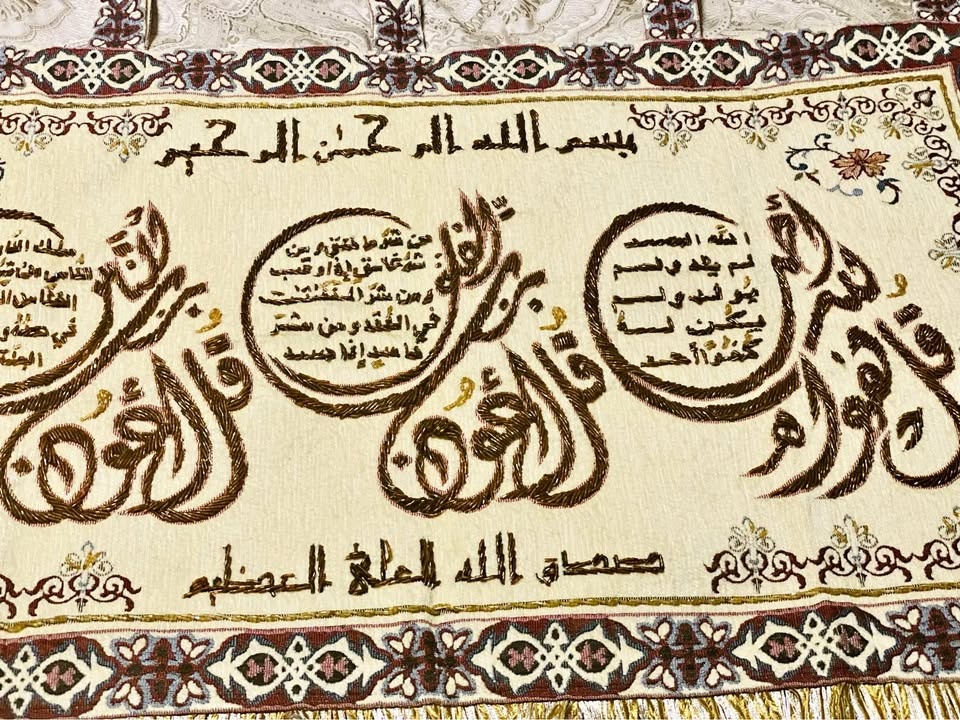 بسم الله الرحمن الرحيم
قل هو الله أحد
الله الصمد
لم يلد ولم
يولد ولم
يكن له
كفوًا أحد
قل أعوذ برب الفلق
من شر ما خلق ومن
شر غاسق إذا وقب
ومن شر النفثت
في العقد ومن شر
حاسد إذا حسد
قل أعوذ برب الناس
ملك
في
صدق الله العلي العظيم